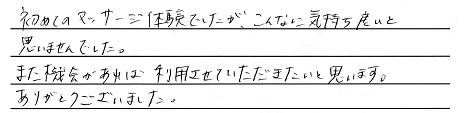 初めてのマッサージ体験でしたが、こんなに気持ち良いと
思いませんでした。
また機会があれば利用させていただきたいと思います。
ありがとうございました。